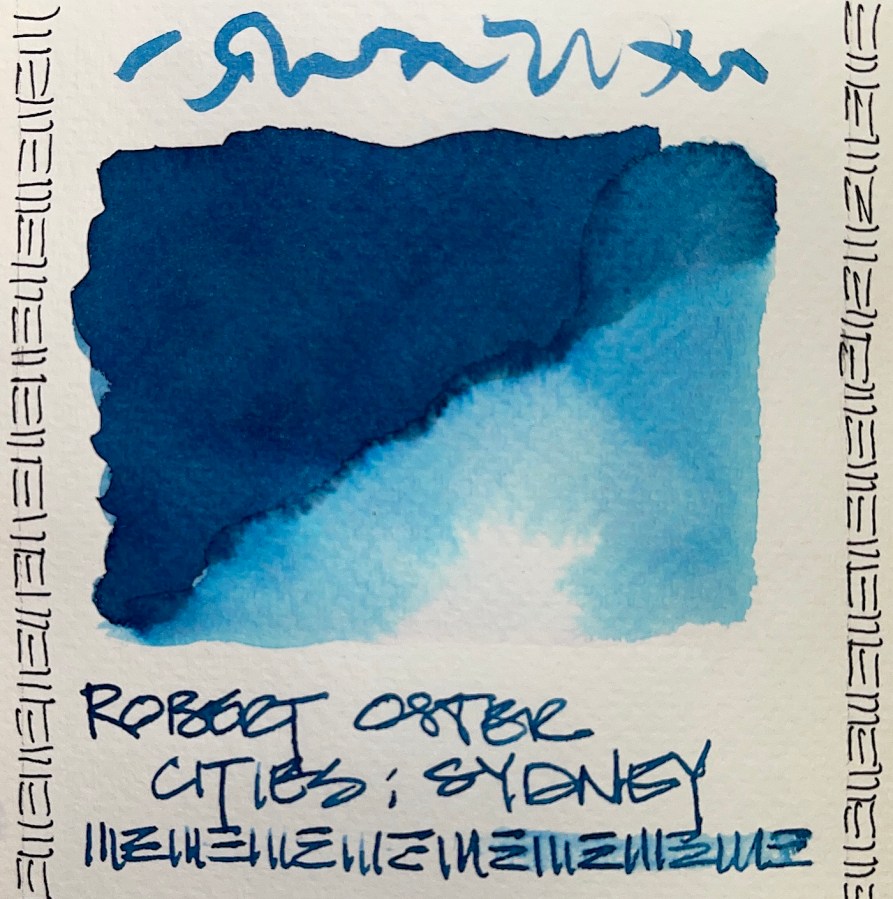 ROBERT OSTER
CITIES: SYDNEY